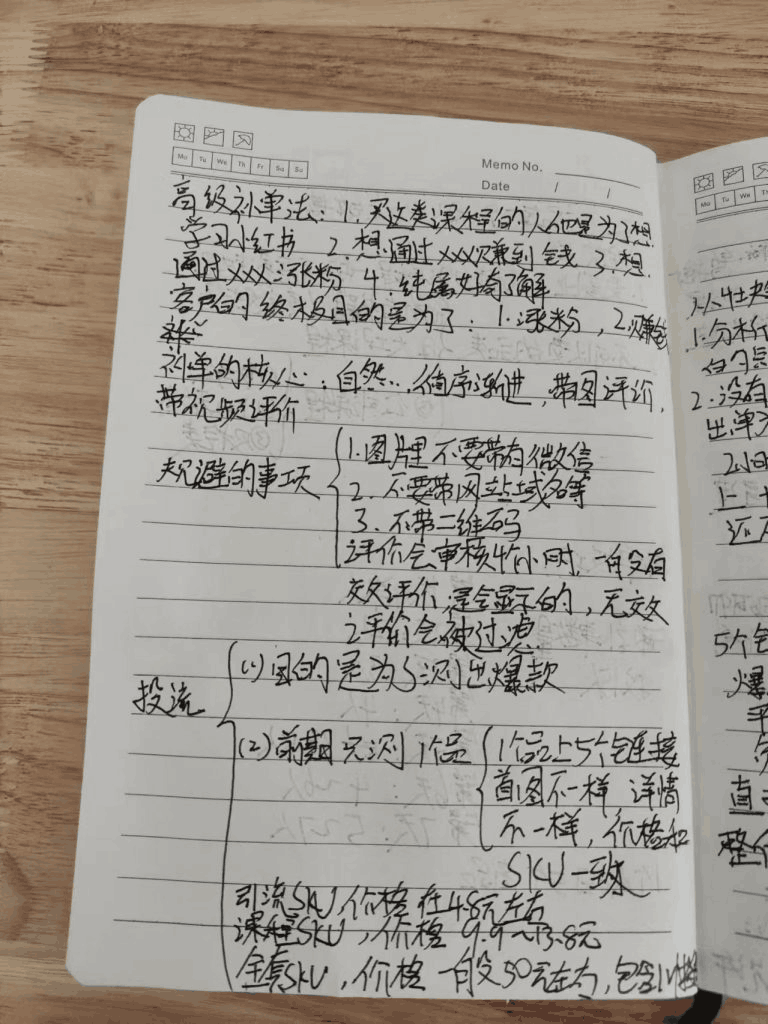 Memo No.
Date / /
Mo Tu We Th Fr Sa Su
高级补单法：1. 买这类课程的人他是为了想
学习小红书 2. 想通过xxx赚到钱 3. 想
通过xxx涨粉 4. 纯属好奇了解
客户的终极目的是为了：1. 涨粉，2. 赚钱
补单的核心：自然，循序渐进，带图评价，
带视频评价
规避的事项
1. 图片里不要带有微信
2. 不要带网站域名等
3. 不带二维码
评价会审核4个小时，一般没有
效评价，是会显示的，无效
评价会被过滤
投流
(1) 目的是为了测出爆款
(2) 前期只测1个品
1个品上5个链接
首图不一样 详情
不一样，价格和
SKU一致
引流SKU，价格在4.8元左右
课程SKU，价格9.9~13.8元
全套SKU，价格一般50元左右，包含
Mo Tu We Th
1. 分析
2. 没有
出单
2小时
5个
爆
平
直
整个